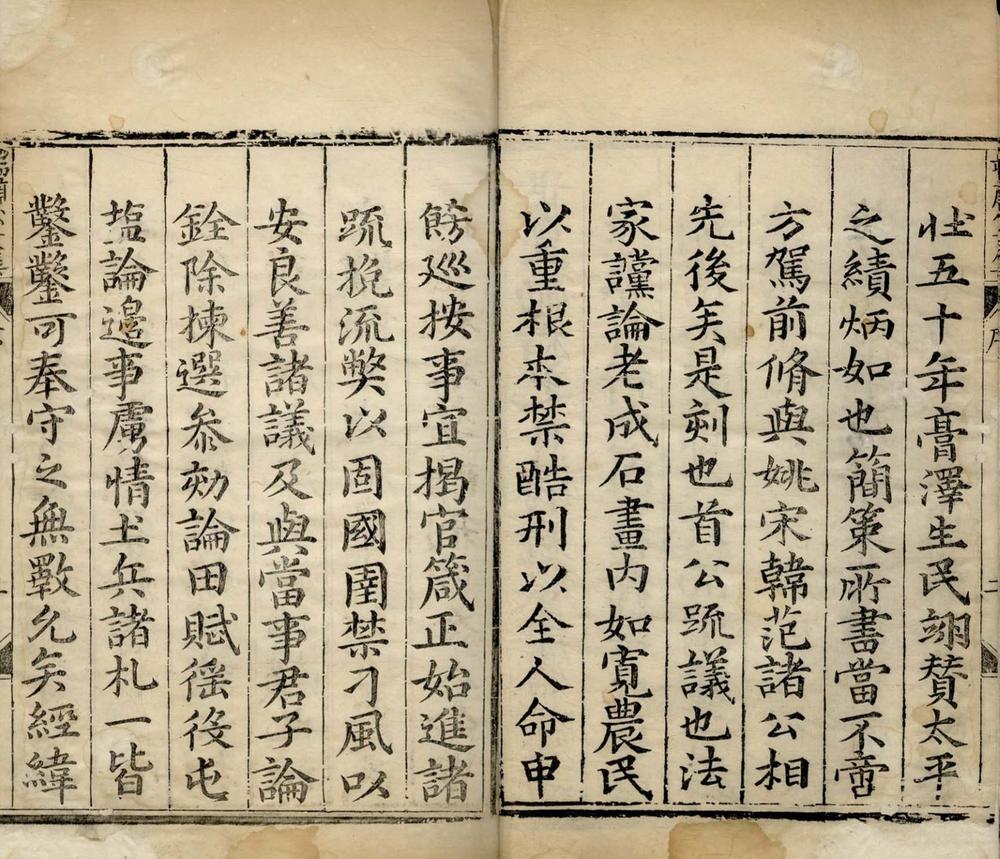 壯五十年膏澤生民翊贊太平
之績炳如也簡策所書當不啻
方駕前脩與姚宋韓范諸公相
先後矣是刻也首公疏議也法
家讜論老成石畫內如寬農民
以重根本禁酷刑以全人命申
餝廵按事宜揭官箴正始進諸
疏挽流弊以固國圉禁刁風以
安良善諸議及與當事君子論
銓除揀選叅劾論田賦徭役屯
塩論邉事虜情土兵諸札一皆
鑿鑿可奉守之無斁允矣經緯